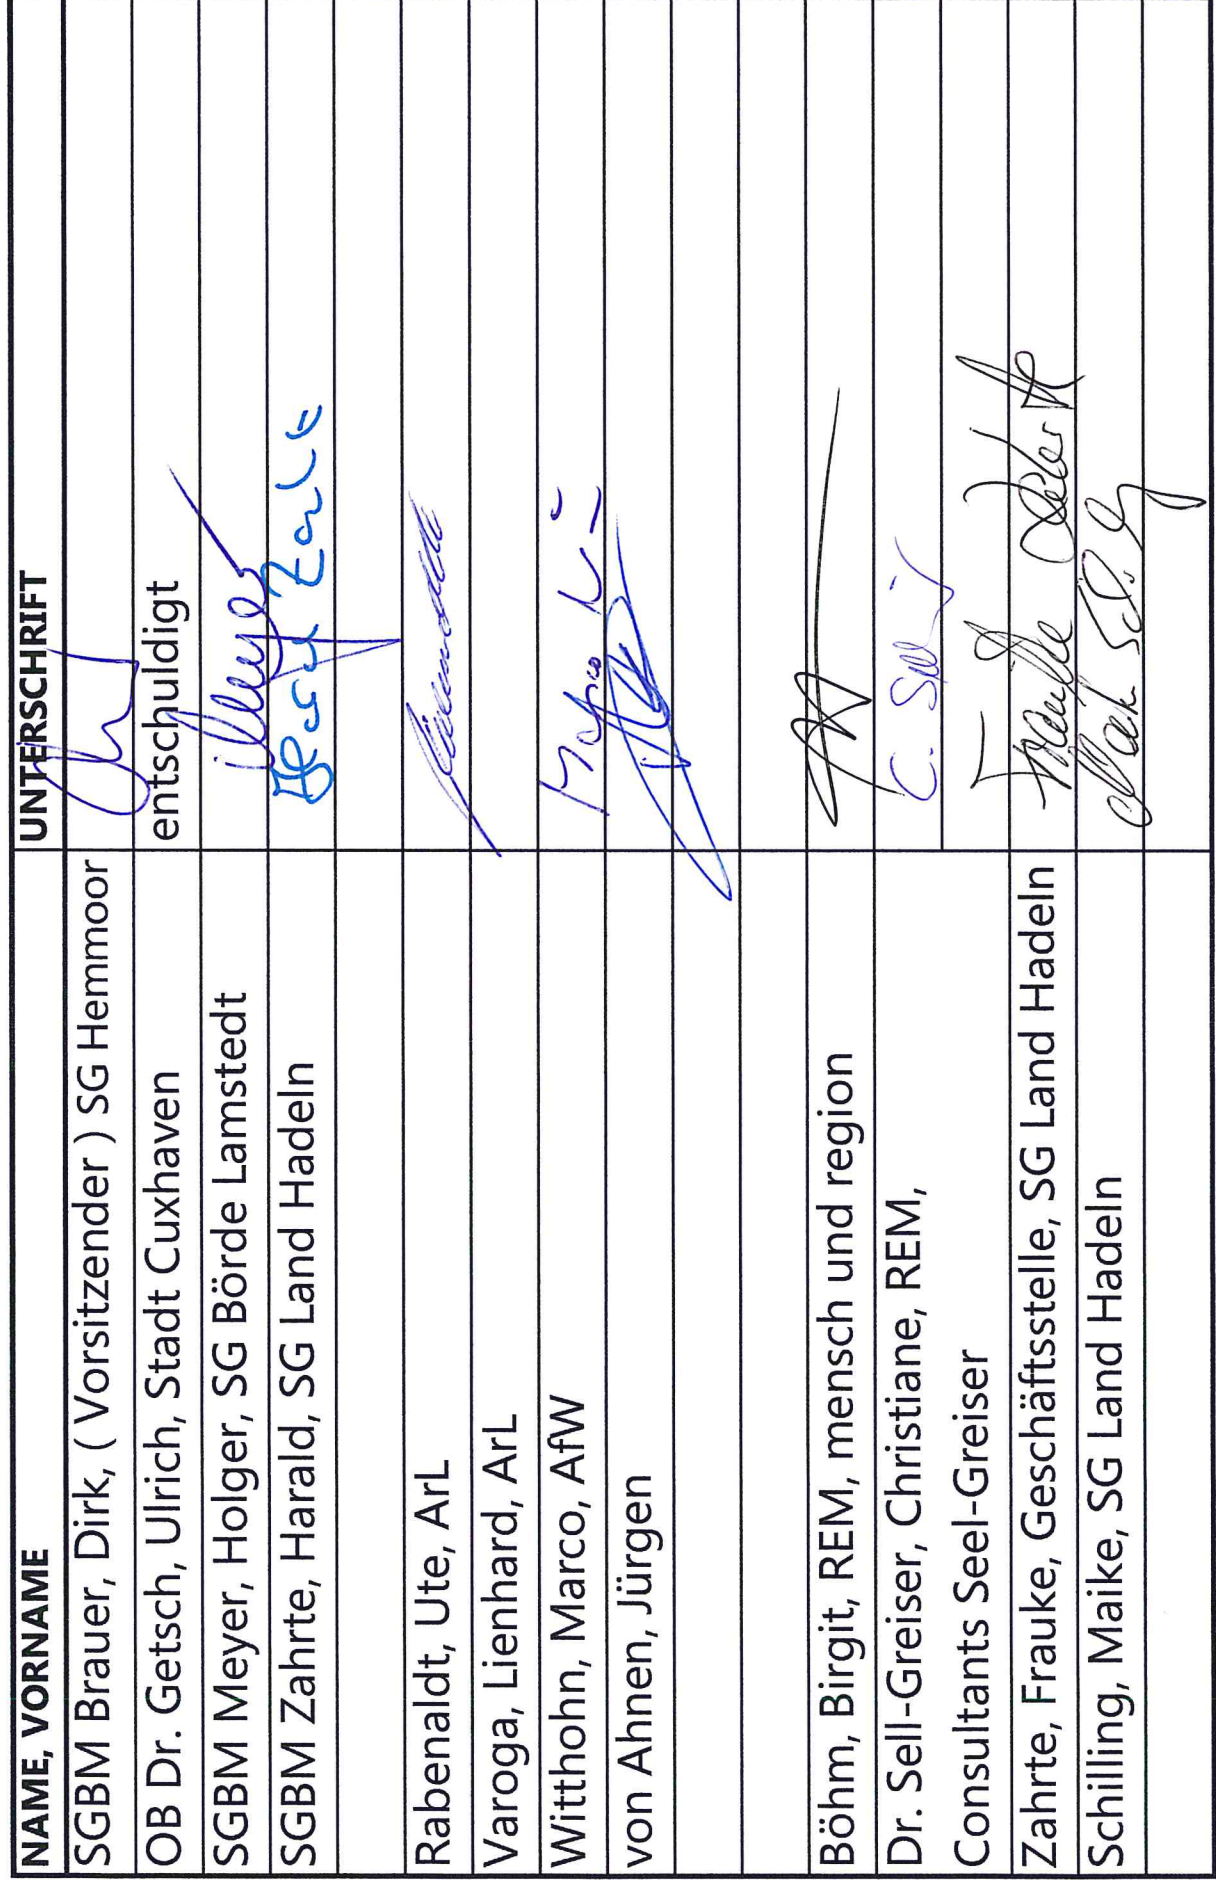 NAME, VORNAME UNTERSCHRIFT
SGBM Brauer, Dirk, ( Vorsitzender ) SG Hemmoor
OB Dr. Getsch, Ulrich, Stadt Cuxhaven entschuldigt
SGBM Meyer, Holger, SG Börde Lamstedt
SGBM Zahrte, Harald, SG Land Hadeln
Rabenaldt, Ute, ArL
Varoga, Lienhard, ArL
Witthohn, Marco, AfW
von Ahnen, Jürgen
Böhm, Birgit, REM, mensch und region
Dr. Sell-Greiser, Christiane, REM, C.
Consultants Seel-Greiser
Zahrte, Frauke, Geschäftsstelle, SG Land Hadeln
Schilling, Maike, SG Land Hadeln